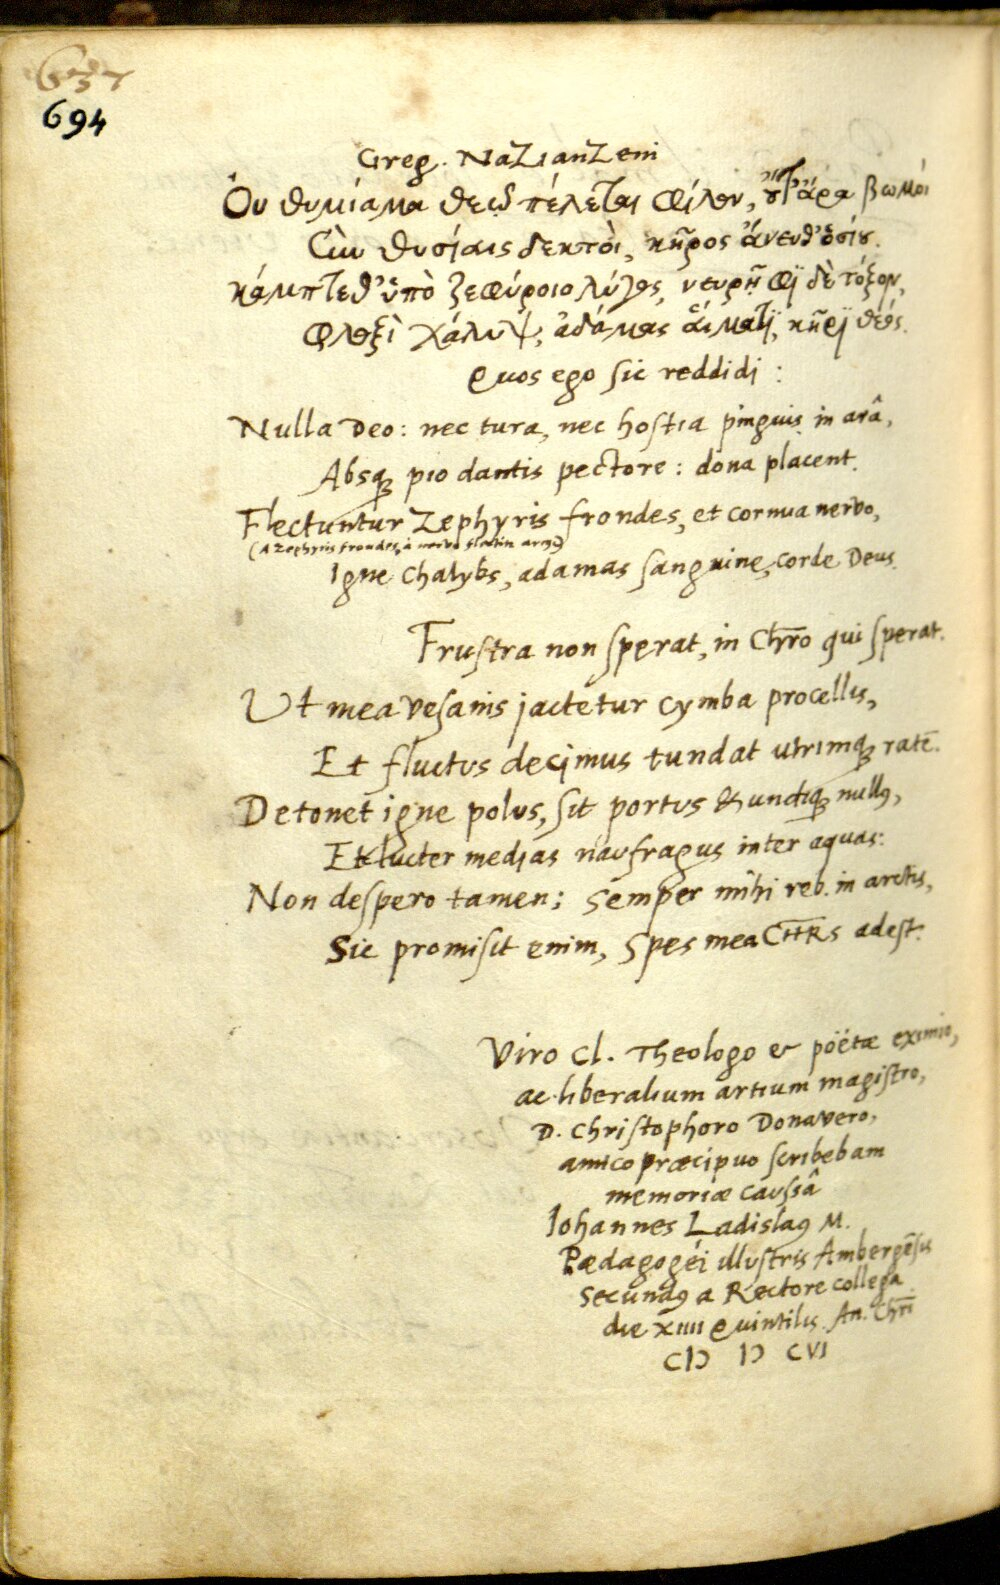 637
694
Greg. NaZianZeni
Ὀυ θυμίαμα θεῷ πέλεται φίλον, ὄυτ' ἄρα βωμόι
Σὺν θυσίαις δεκτὸι, κῆρος ἄνευθ' ὁσίου.
κάμπτεθ' ὑπὸ ζεφύροιο λύγος, νευρῆφι δὲ τόξον,
φλοξὶ χάλυψ, ἀδάμας ἅιματι, κῆρι θεός.
Quos ego sic reddidi:
Nulla Deo: nec tura, nec hostia pinguis in arâ,
Absq; pio dantis pectore: dona placent.
Flectuntur Zephyris frondes, et cornua nervo,
(A Zephyris frondes, à nervo flectin arcus)
Igne Chalybs, adamas sanguine, corde Deus.
Frustra non sperat, in Chro qui sperat.
Ut mea vesanis jactetur cymba procellis,
Et fluctus decimus tundat utrimq; ratē.
Detonet igne polus, sit portus & undiq; null9,
Et lucter medias naufragus inter aquas:
Non despero tamen; semper mihi reb. in arctis,
Sic promisit enim, Spes mea CHRS adest.
Viro Cl. Theologo & pöëtæ eximio,
ac liberalium artium magistro,
D. Christophoro Donavero,
amico præcipuo scribebam
memoriæ caussâ
Iohannes Ladislag M.
Pædagogéi illustris Ambergēsis
Secund9 a Rectore collega
die XIIII Quintilis. An. Chri
CIↃ IↃ CVI